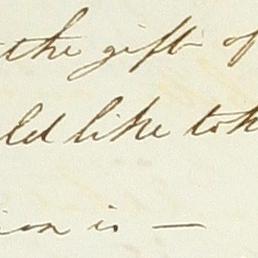 the gift of
ld like to k
ion is —